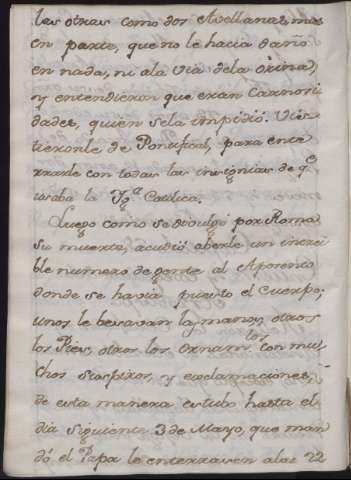 les otras como dos Avellanas, mas
en parte, que no le hacia daño
en nada, ni ala via dela orina,
y entendieron que eran Carnori
dades, quien sela impidió. Vis
tieronle de Pontifical, para ente
rrarle con todas las insignias de qe
usaba la Yga Catolica.
Luego como se divulgó por Roma
su muerte, acudió aberle un increi
ble numero de gente al Aposento
donde se havia puesto el Cuerpo;
unos le besavan las manos, otros
los Pies, otros los Ornamtos con mu
chos suspiros, y exclamaciones,
de esta manera estubo hasta el
dia siguiente 3 de Mayo, que man
dó el Papa le enterrasen alas 22